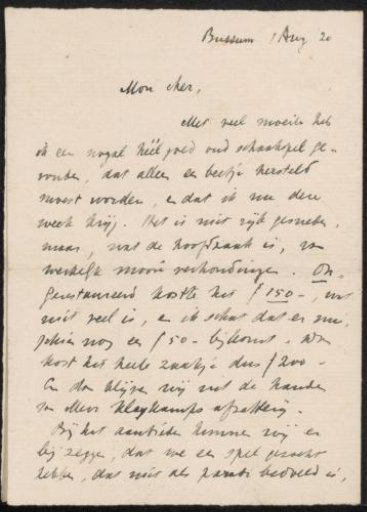 Bussum 1 Aug 20
Mon cher,
Met veel moeite heb
ik een nogal héél goed oud schaakspel ge-
vonden, dat alleen een beetje hersteld
moest worden, en dat ik nu deze
week krijg. Het is niet rijk gesneden,
maar, wat de hoofdzaak is, van
werkelijk mooie verhoudingen. On-
gerestaureerd kostte het f 150-, wat
niet veel is, en ik schat dat er mis-
schien nog een f 50- bijkomt. Dan
kost het heele zaakje dus f 200-
En dan blijven wij uit de handen
van Mevr Kleykamps afzetterij.
Bij het aanbieden kunnen wij er
bij zeggen, dat we een spel gezocht
hebben, dat niet als bedoeld is,